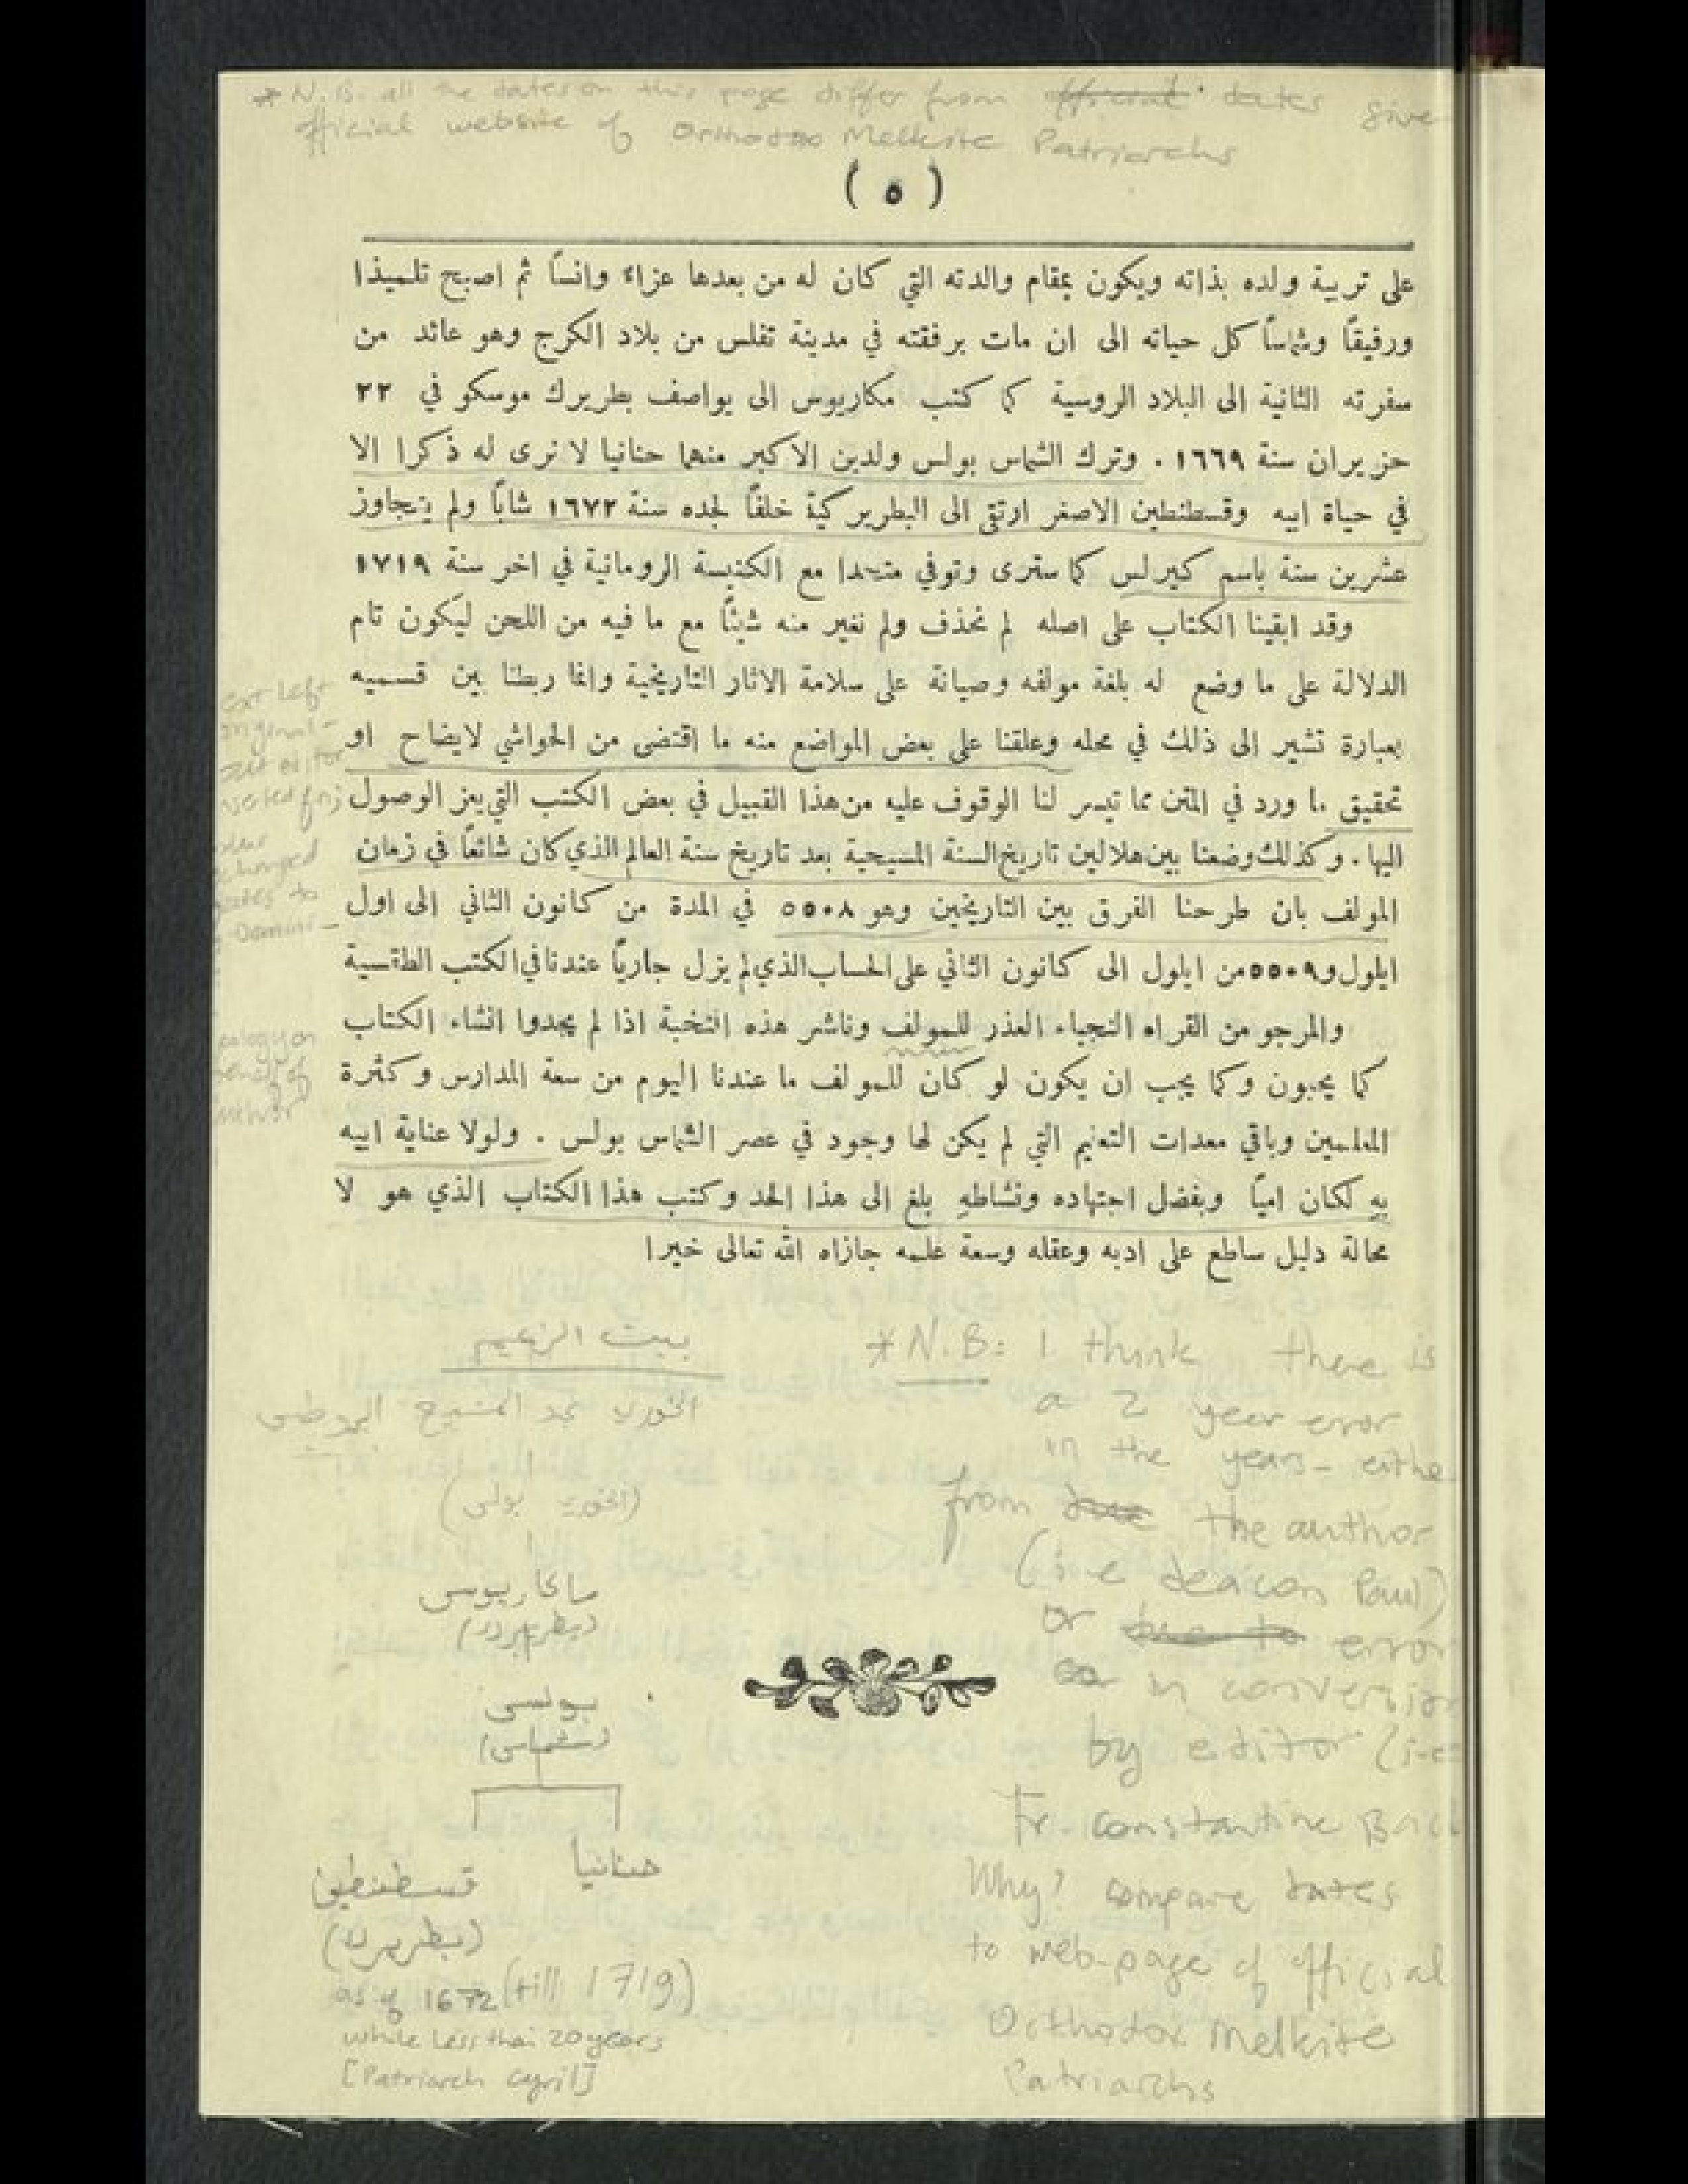 * N.B. all the dates on this page differ from official dates give
official website of Orthodox Melkite Patriarchs
( ٥ )
على تربية ولده بذاته ويكون بمقام والدته التي كان له من بعدها عزاء وانساً ثم اصبح تلميذا
ورفيقاً وشماساً كل حياته الى ان مات برفقته في مدينة تفلس من بلاد الكرج وهو عائد من
سفرته الثانية الى البلاد الروسية كما كتب مكاريوس الى يواصف بطريرك موسكو في ٢٢
حزيران سنة ١٦٦٩ . وترك الشماس بولس ولدين الاكبر منهما حنانيا لا نرى له ذكرا الا
في حياة ابيه وقسطنطين الاصغر ارتقى الى البطريركية خلفاً لجده سنة ١٦٧٢ شاباً ولم يتجاوز
عشرين سنة باسم كيرلس كما سترى وتوفي متحدا مع الكنيسة الرومانية في اخر سنة ١٧١٩
وقد ابقينا الكتاب على اصله لم نحذف ولم نغير منه شيئاً مع ما فيه من اللحن ليكون تام
الدلالة على ما وضع له بلغة مولفه وصيانة على سلامة الاثار التاريخية وانما ربطنا بين قسميه
بعبارة تشير الى ذلك في محله وعلقنا على بعض المواضع منه ما اقتضى من الحواشي لايضاح او
تحقيق ما ورد في المتن مما تيسر لنا الوقوف عليه من هذا القبيل في بعض الكتب التي يعز الوصول
اليها . وكذلك وضعنا بين هلالين تاريخ السنة المسيحية بعد تاريخ سنة العالم الذي كان شائعاً في زمان
المولف بان طرحنا الفرق بين التاريخين وهو ٥٥٠٨ في المدة من كانون الثاني الى اول
ايلول و٥٥٠٩ من ايلول الى كانون الثاني على الحساب الذي لم يزل جارياً عندنا في الكتب الطقسية
والمرجو من القراء النجباء العذر للمولف وناشر هذه النخبة اذا لم يجدوا انشاء الكتاب
كما يحبون وكما يجب ان يكون لو كان للمولف ما عندنا اليوم من سعة المدارس وكثرة
المعلمين وباقي معدات التعليم التي لم يكن لها وجود في عصر الشماس بولس . ولولا عناية ابيه
بهِ لكان امياً وبفضل اجتهاده ونشاطهِ بلغ الى هذا الحد وكتب هذا الكتاب الذي هو لا
محالة دليل ساطع على ادبه وعقله وسعة علمه جازاه الله تعالى خيرا
ext left
original -
editor
changed
dates to
Domini -
apology on
behalf of
بيت الزعيم
الخوري عبد المسيح
(الخوري بولس)
ماكاريوس
(بطريرك)
بولس
(شماس)
حنانيا
قسطنطين
(بطريرك)
as of 1672 (till 1719)
while less than 20 years
[Patriarch Cyril]
* N.B: I think there is
a 2 year error
in the years - eithe
from the author
(i.e deacon Paul)
or due to error
in conversion
by editor (i.e
Fr. Constantine
Why? compare dates
to web-page of official
Orthodox Melkite
Patriarchs